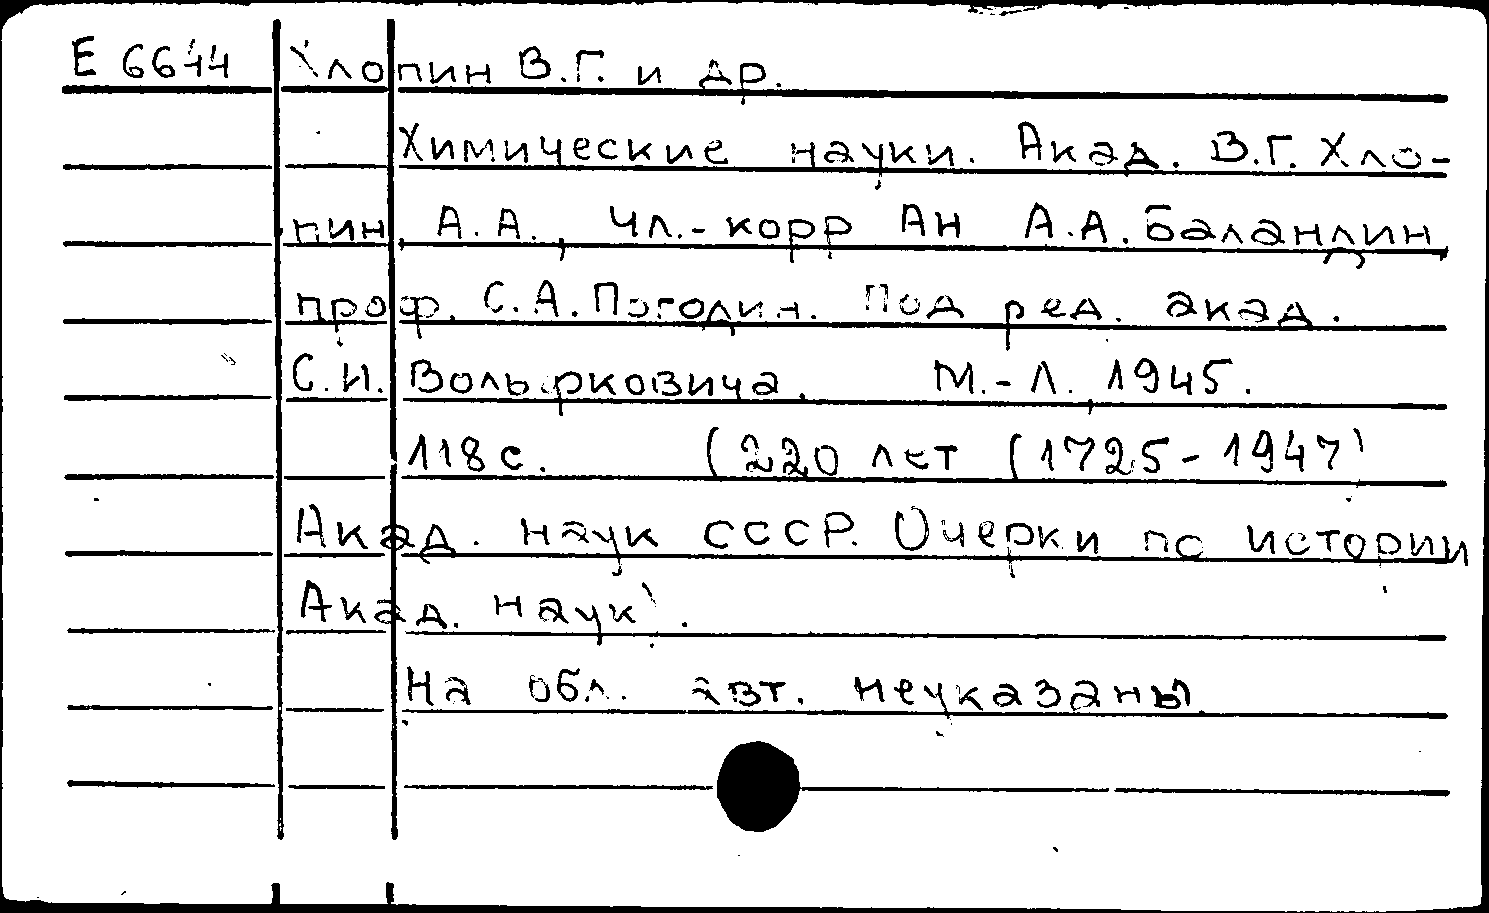 Е 6644 Хлопин В.Г. и др.
Химические науки. Акад. В.Г. Хло-
пин, А.А., чл.-корр АН А.А. Баландин,
проф. С.А. Погодин. Под ред. акад.
С.И. Вольфрковича. М.-Л., 1945.
118 с. (220 лет (1725-1947)
Акад. наук СССР. Очерки по истории
Акад. наук).
На обл. авт. неуказаны.